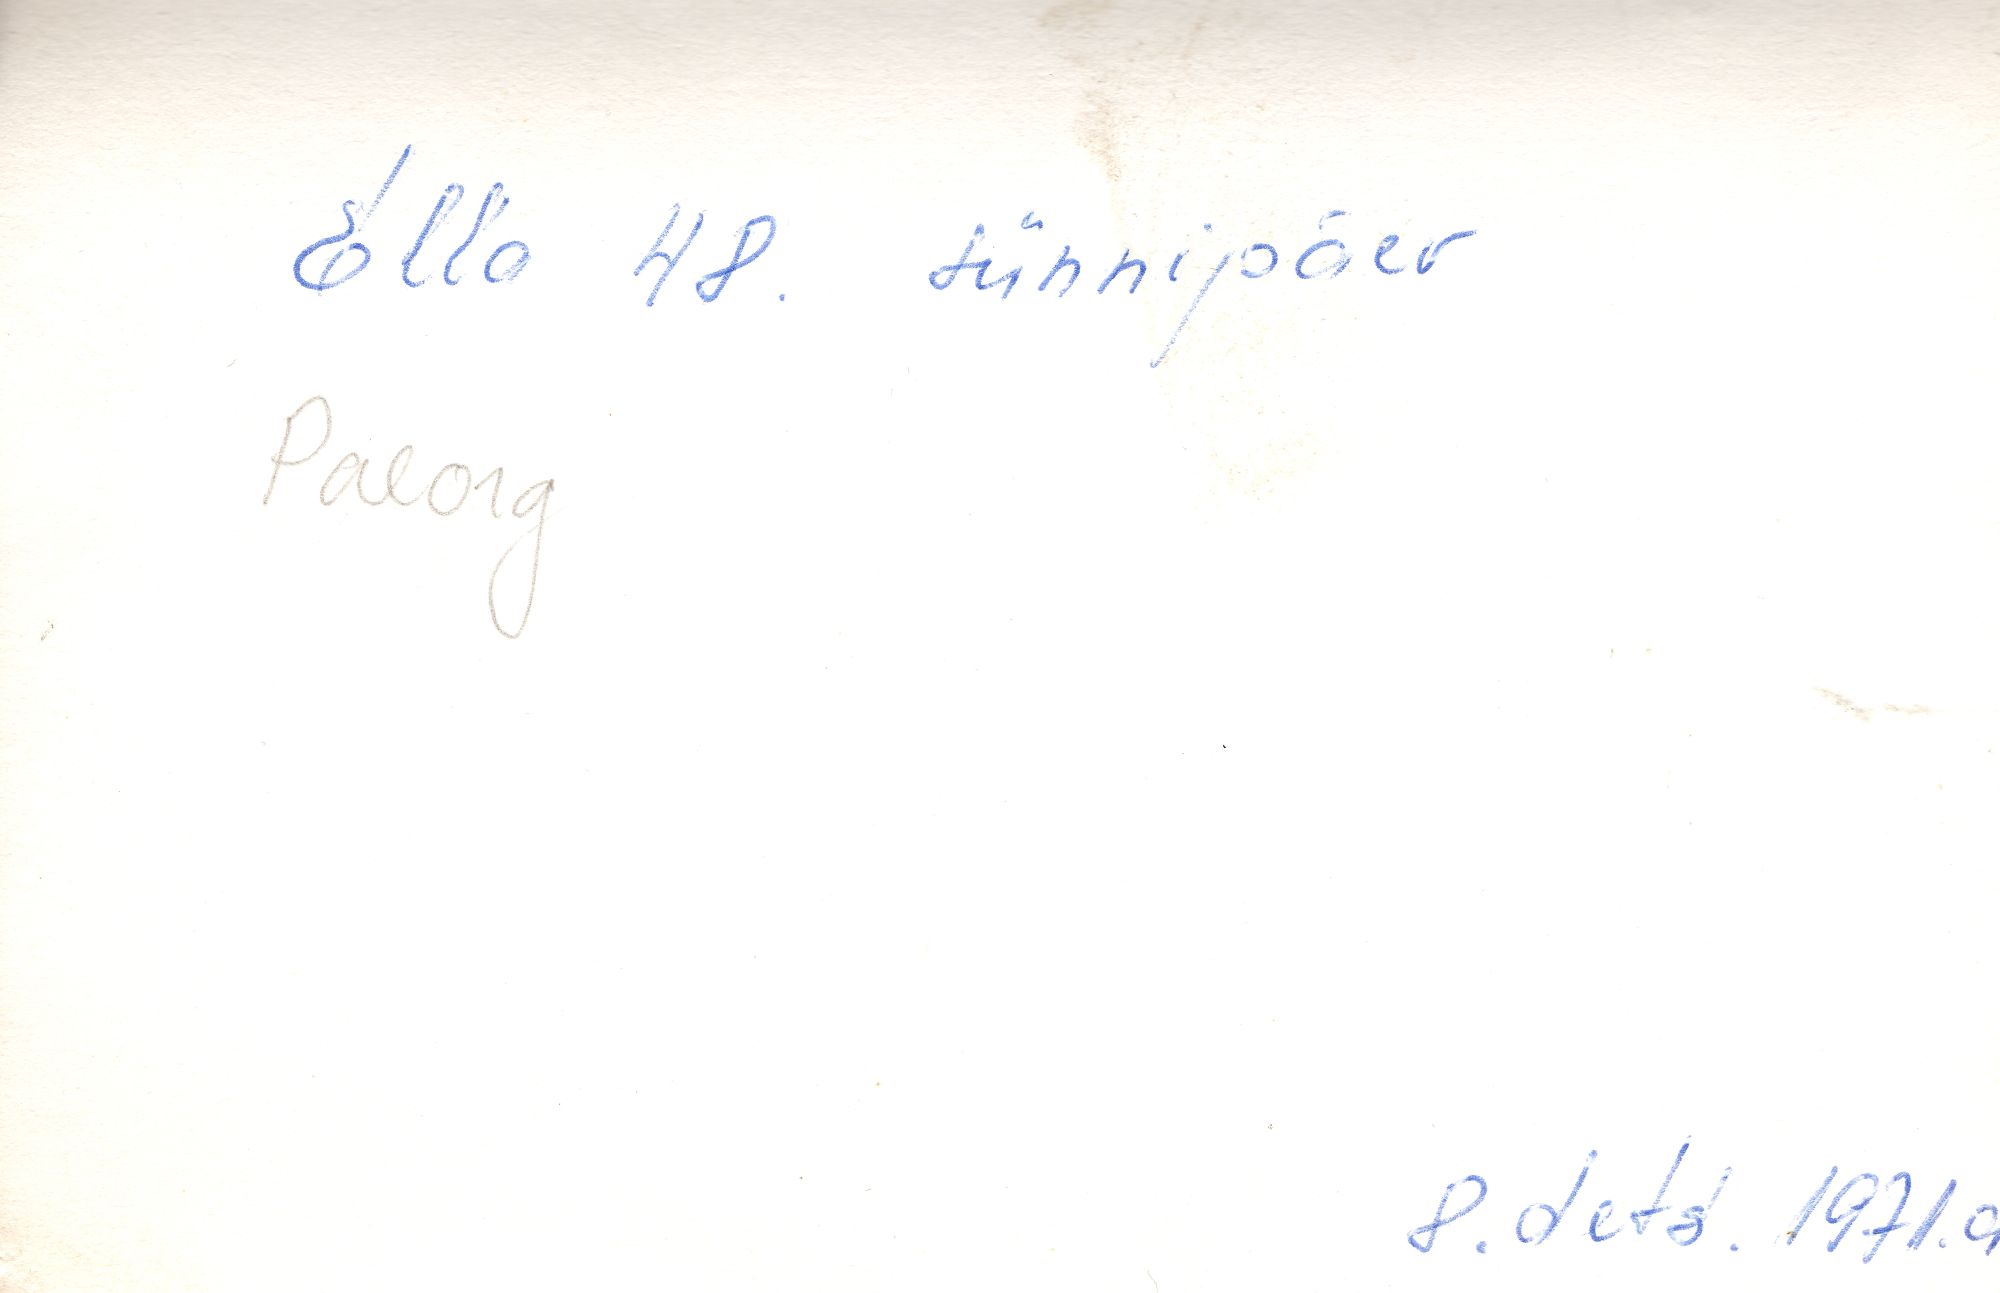 Ella 48. sünnipäev
Palorg
8. dets. 1971.a